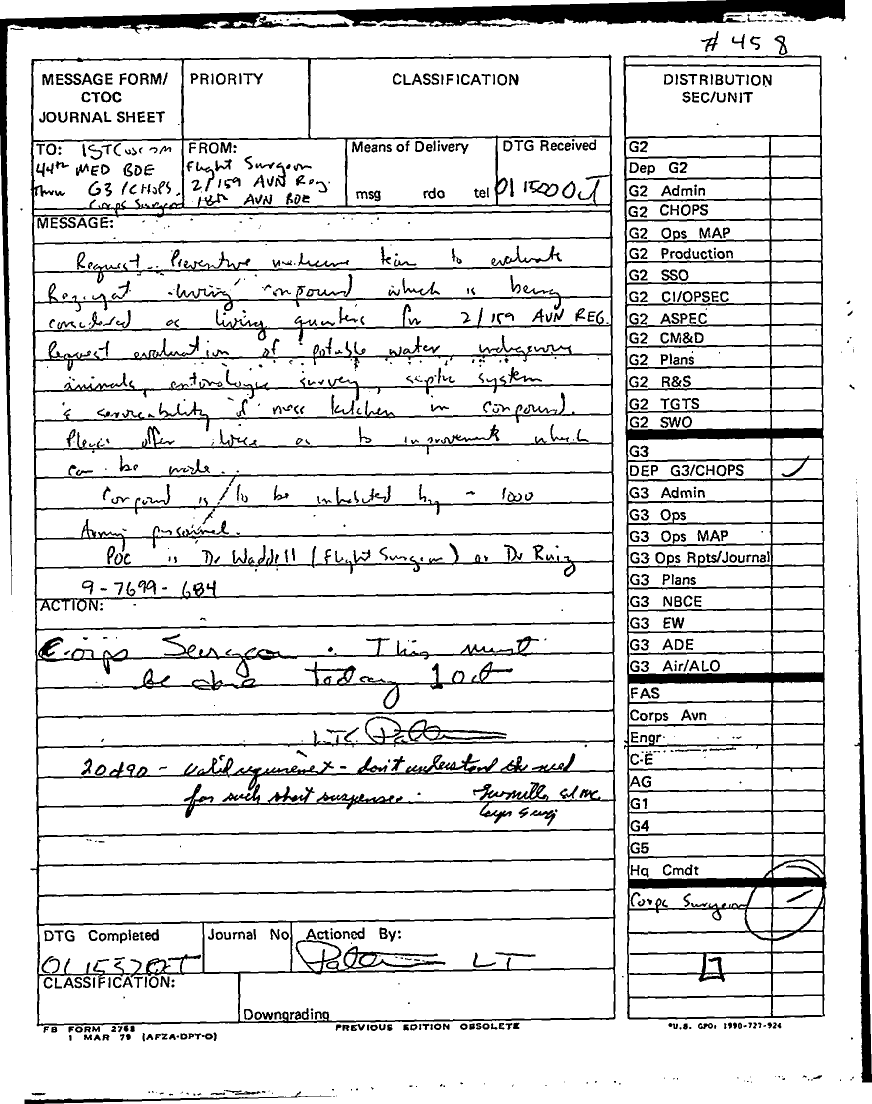 # 458
MESSAGE FORM/
CTOC
JOURNAL SHEET
PRIORITY
CLASSIFICATION
TO: 1ST
44th MED BDE
thru G3/CHOPS
Corps Surgeon
FROM:
Flight Surgeon
2/159 AVN Reg.
18th AVN BDE
Means of Delivery
msg rdo tel
DTG Received
01 1500 OCT
MESSAGE:
Request Preventive medicine team to evaluate
living compound which is being
considered as living quarters for 2/159 AVN REG.
Request evaluation of potable water, indigenous
animals, entomologic survey, septic system
& serviceability of mess kitchen in compound.
Please offer as to improvements which
can be made.
Compound is to be inhabited by ~ 1000
Army personnel.
POC is Dr Waddell (Flight Surgeon) or Dr Ruiz
9-7699-684
ACTION:
Corps Surgeon. This must
be done today 1 Oct
LTC
2 Oct 90 - Valid requirement - don't understand the need
for such short suspense.
Corps Surg
DTG Completed
01 1532 OCT
Journal No
Actioned By:
CLASSIFICATION:
Downgrading
FB FORM 2768
1 MAR 79 (AFZA-DPT-O)
PREVIOUS EDITION OBSOLETE
DISTRIBUTION
SEC/UNIT
G2
Dep G2
G2 Admin
G2 CHOPS
G2 Ops MAP
G2 Production
G2 SSO
G2 CI/OPSEC
G2 ASPEC
G2 CM&D
G2 Plans
G2 R&S
G2 TGTS
G2 SWO
G3
DEP G3/CHOPS ✓
G3 Admin
G3 Ops
G3 Ops MAP
G3 Ops Rpts/Journal
G3 Plans
G3 NBCE
G3 EW
G3 ADE
G3 Air/ALO
FAS
Corps Avn
Engr
C-E
AG
G1
G4
G5
Hq Cmdt
Corps Surgeon
*U.S. GPO: 1990-727-924